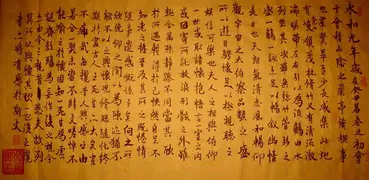 永和九年歲在癸丑暮春之初會
于會稽山陰之蘭亭脩稧事
也群賢畢至少長咸集此地
有崇山峻領茂林脩竹又有清流激
湍暎帶左右引以為流觴曲水
列坐其次雖無絲竹管弦之
盛一觴一詠亦足以暢敘幽情
是日也天朗氣清惠風和暢仰
觀宇宙之大俯察品類之盛
所以遊目騁懷足以極視聽之
娛信可樂也夫人之相與俯仰
一世或取諸懷抱悟言一室之內
或因寄所託放浪形骸之外雖
趣舍萬殊靜躁不同當其欣
於所遇暫得於己快然自足不
知老之將至及其所之既惓情
隨事遷感慨係之矣向之所
欣俛仰之間以為陳跡猶不
能不以之興懷況脩短隨化終
期於盡古人云死生亦大矣豈
不痛哉每攬昔人興感之由
若合一契未嘗不臨文嗟悼不
能喻之於懷固知一死生為虛
誕齊彭殤為妄作後之視今
亦由今之視昔悲夫故列
敘時人錄其所述雖世殊事
異所以興懷其致一也後之攬
者亦將有感於斯文